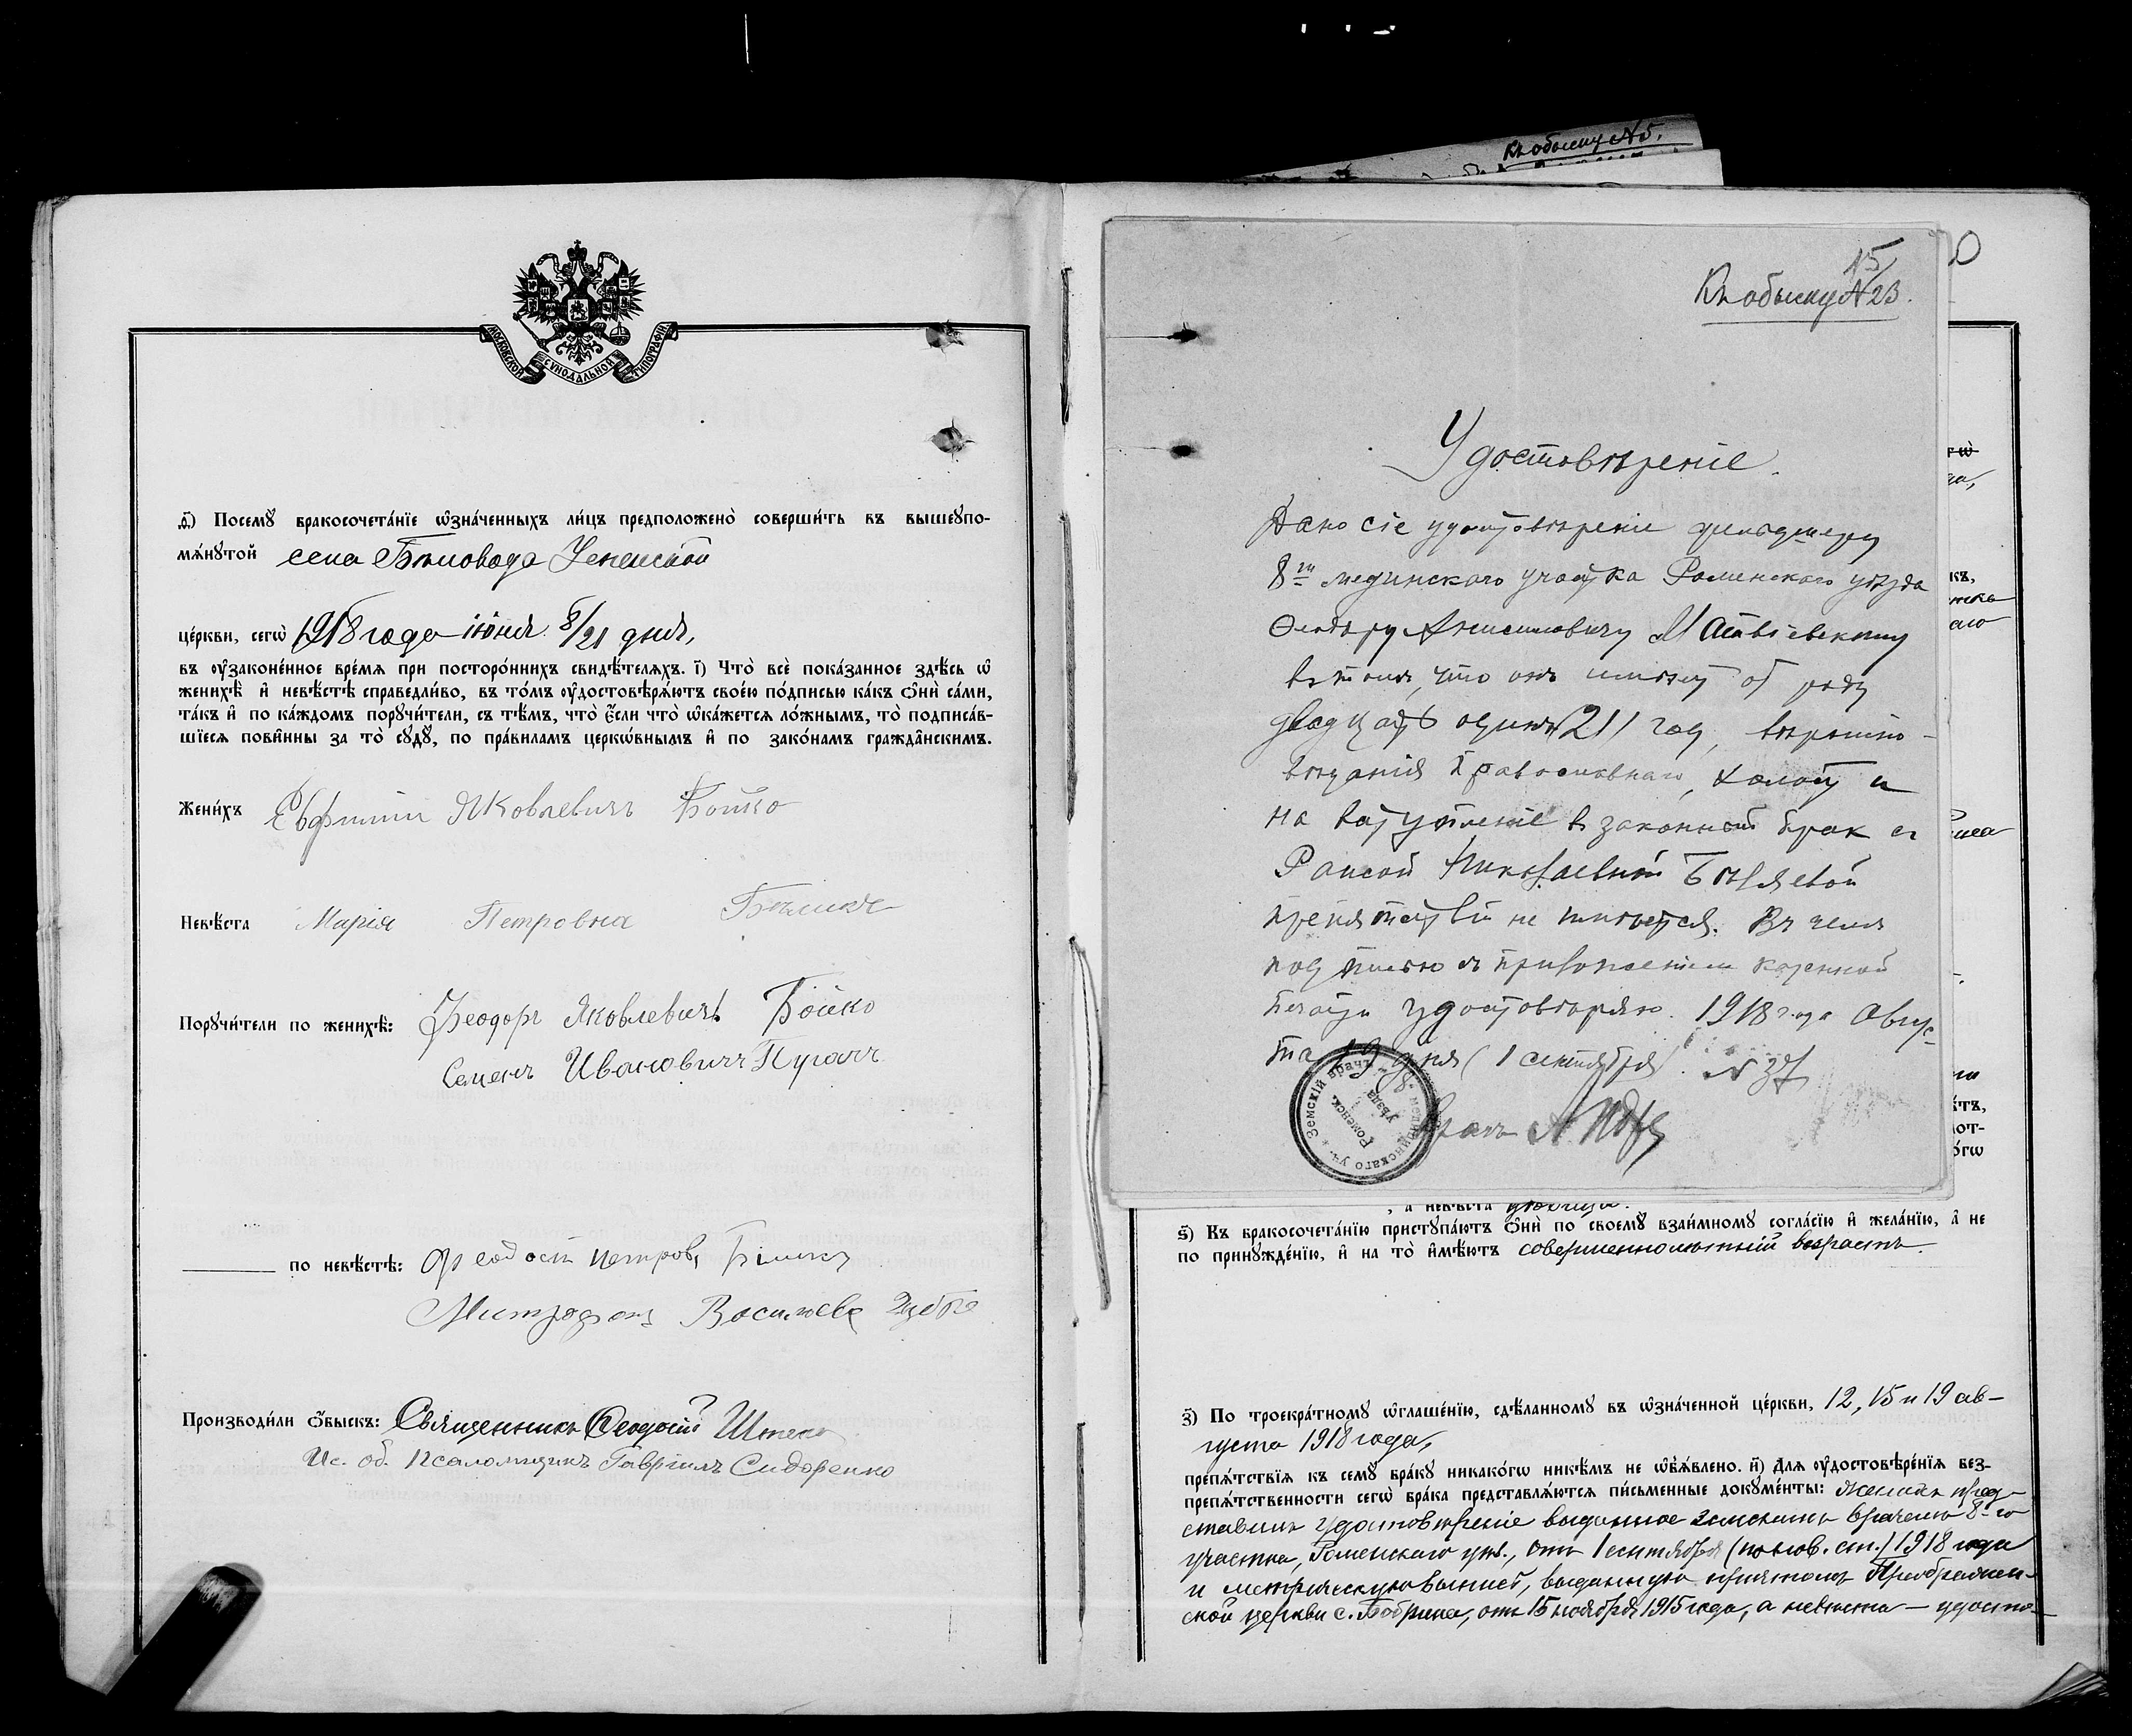 Къ обыску № 5.
МОСКОВСКОЙ СѴНОДАЛЬНОЙ ТИПОГРАФІИ
д҃) Посемꙋ̀ бракосочета́нїе ѡ҆зна́ченныхъ ли́цъ предположено̀ соверши́ть въ вышеꙋпо-
мѧ́нꙋтой села Бѣловода Успенской
це́ркви, сегѡ̀ 1918 года іюня 8/21 дня,
въ ᲂу҆законе́нное вре́мѧ при посторо́ннихъ свидѣ́телѧхъ. і҃) Что̀ всѐ пока́занное здѣ́сь ѡ҆
женихѣ̀ и҆ невѣ́стѣ справедли́во, въ то́мъ ᲂу҆достовѣрѧ́ютъ свое́ю по́дписью ка́къ ѻ҆нѝ са́ми,
та́къ и҆ по ка́ждомъ порꙋчи́тели, съ тѣ́мъ, что̀ є҆́сли что̀ ѡ҆ка́жетсѧ ло́жнымъ, то̀ подписа́в-
шїесѧ пови́нны за то̀ сꙋдꙋ̀, по пра́виламъ церкѡ́внымъ и҆ по зако́намъ гражда́нскимъ.
Жени́хъ Евфимій Яковлевичъ Бойко
Невѣ́ста Марія Петровна Бѣлика
Порꙋчи́тели по женихѣ̀: Феодоръ Яковлевичъ Бойко
Семенъ Ивановичъ Пугачъ
по невѣ́стѣ: Феодосій Петровъ
Митрофанъ Васильевъ
Производи́ли ѻ҆́быскъ: Священникъ Ѳеодосій
Ис. об. Псаломщикъ Гавріилъ Сидоренко
15
Къ обыску № 23.
Удостовѣреніе.
Дано сіе удостовѣреніе фельдшеру
8го мединскаго участка Роменскаго уѣзда
Ѳеодору Анисимовичу Матвіевскому
въ томъ, что онъ имѣетъ от роду
двадцать одинъ (21) год, вѣроиспо-
вѣданія православнаго, холост и
на вступленіе в законный брак съ
Раисой Николаевной Бѣляевой
препятствій не имѣется. Въ чемъ
подписью и приложеніемъ казенной
печати удостовѣряю. 1918 года Авгус-
та 19 дня (1 сентября). № 37
Врачъ
Земскій врачъ 8 медицинскаго уч. Роменск. уѣзда
, а҆ невѣ́ста дѣвица.
ѕ҃) Къ бракосочета́нїю пристꙋпа́ютъ ѻ҆нѝ по своемꙋ̀ взаи́мномꙋ согла́сїю и҆ жела́нїю, а҆ не
по принꙋжде́нїю, и҆ на то̀ и҆мѣ́ютъ совершеннолѣтній возрастъ.
з҃) По троекра́тномꙋ ѡ҆глаше́нїю, сдѣ́ланномꙋ въ ѡ҆зна́ченной це́ркви, 12, 15 и 19 ав-
густа 1918 года,
препѧ́тствїѧ къ семꙋ̀ бра́кꙋ никако́гѡ никѣ́мъ не ѡ҆б̾ѧ́влено. и҃) Длѧ ᲂу҆достовѣре́нїѧ без-
препѧ́тственности сегѡ̀ бра́ка представлѧ́ютсѧ пи́сьменные докꙋме́нты: Женихъ пред-
ставилъ удостовѣреніе выданное земскимъ врачемъ 8-го
участка, Роменскаго уѣз., отъ 1 сентября (по нов. ст.) 1918 года
и метрическую выпись, выданную причтомъ Преображен-
ской церкви с. Бобрика, отъ 15 ноября 1915 года, а невѣста — удосто-